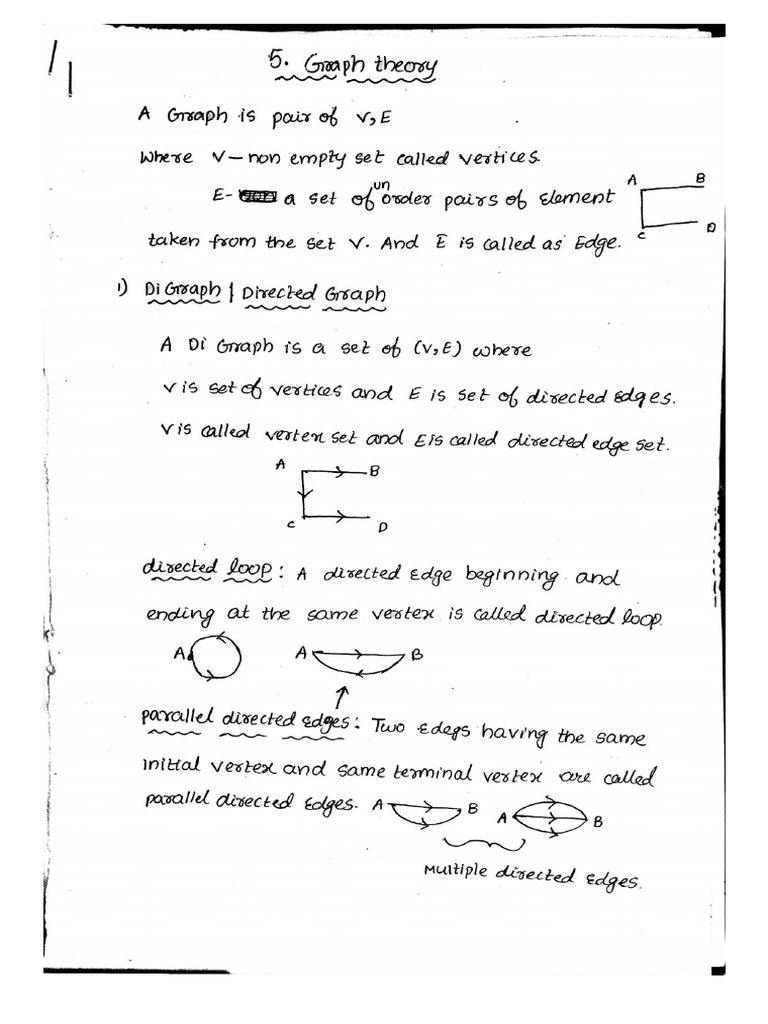 5. Graph theory
A Graph is pair of V, E
Where V – non empty set called vertices.
E- a set of un order pairs of Element
A B
C D
taken from the set V. And E is called as Edge.
1) Di Graph | Directed Graph
A Di Graph is a set of (V, E) where
V is set of vertices and E is set of directed Edges.
V is called vertex set and E is called directed edge set.
A B
C D
directed loop : A directed Edge beginning and
ending at the same vertex is called directed loop.
A A B
parallel directed Edges : Two Edegs having the same
initial vertex and same terminal vertex are called
parallel directed Edges. A B A B
Multiple directed Edges.